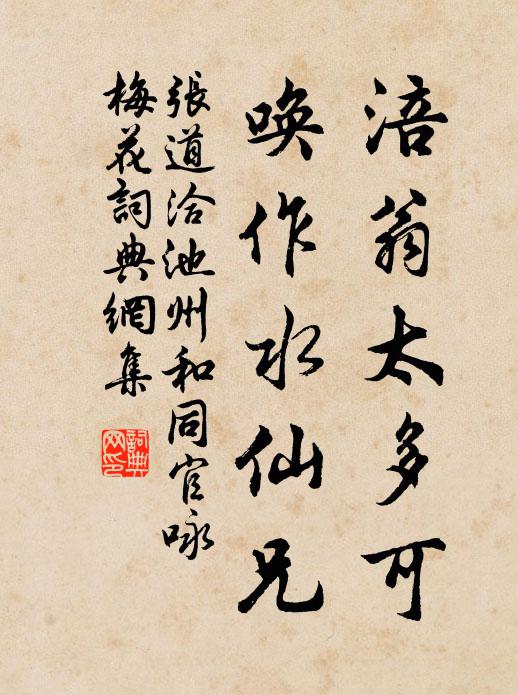 涪翁太多可
唤作水仙兄
張道洽池州和同官咏
梅花詞典網集
詞典
网印